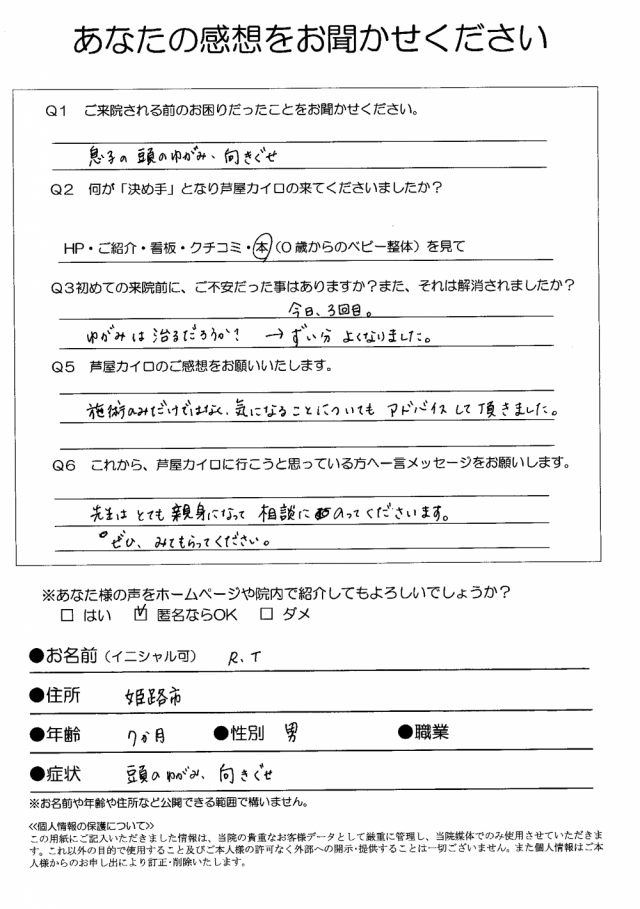 あなたの感想をお聞かせください
Q1 ご来院される前のお困りだったことをお聞かせください。
息子の頭のゆがみ、向きぐせ
Q2 何が「決め手」となり芦屋カイロの来てくださいましたか?
HP・ご紹介・看板・クチコミ・本(0歳からのベビー整体)を見て
Q3初めての来院前に、ご不安だった事はありますか?また、それは解消されましたか?
今日、3回目。
ゆがみは治るだろうか? →ずい分よくなりました。
Q5 芦屋カイロのご感想をお願いいたします。
施術のみだけではなく、気になることについてもアドバイスして頂きました。
Q6 これから、芦屋カイロに行こうと思っている方へ一言メッセージをお願いします。
先生はとても親身になって相談にのってくださいます。
ぜひ、みてもらってください。
※あなた様の声をホームページや院内で紹介してもよろしいでしょうか?
□ はい ☑ 匿名ならOK □ ダメ
●お名前(イニシャル可) R.T
●住所 姫路市
●年齢 7か月 ●性別 男 ●職業
●症状 頭のゆがみ、向きぐせ
※お名前や年齢や住所など公開できる範囲で構いません。
≪個人情報の保護について≫
この用紙にご記入いただきました情報は、当院の貴重なお客様データとして厳重に管理し、当院媒体でのみ使用させていただきま
す。これ以外の目的で使用すること及びご本人様の許可なく外部への開示・提供することは一切ございません。また個人情報はご本
人様からのお申し出により訂正・削除いたします。